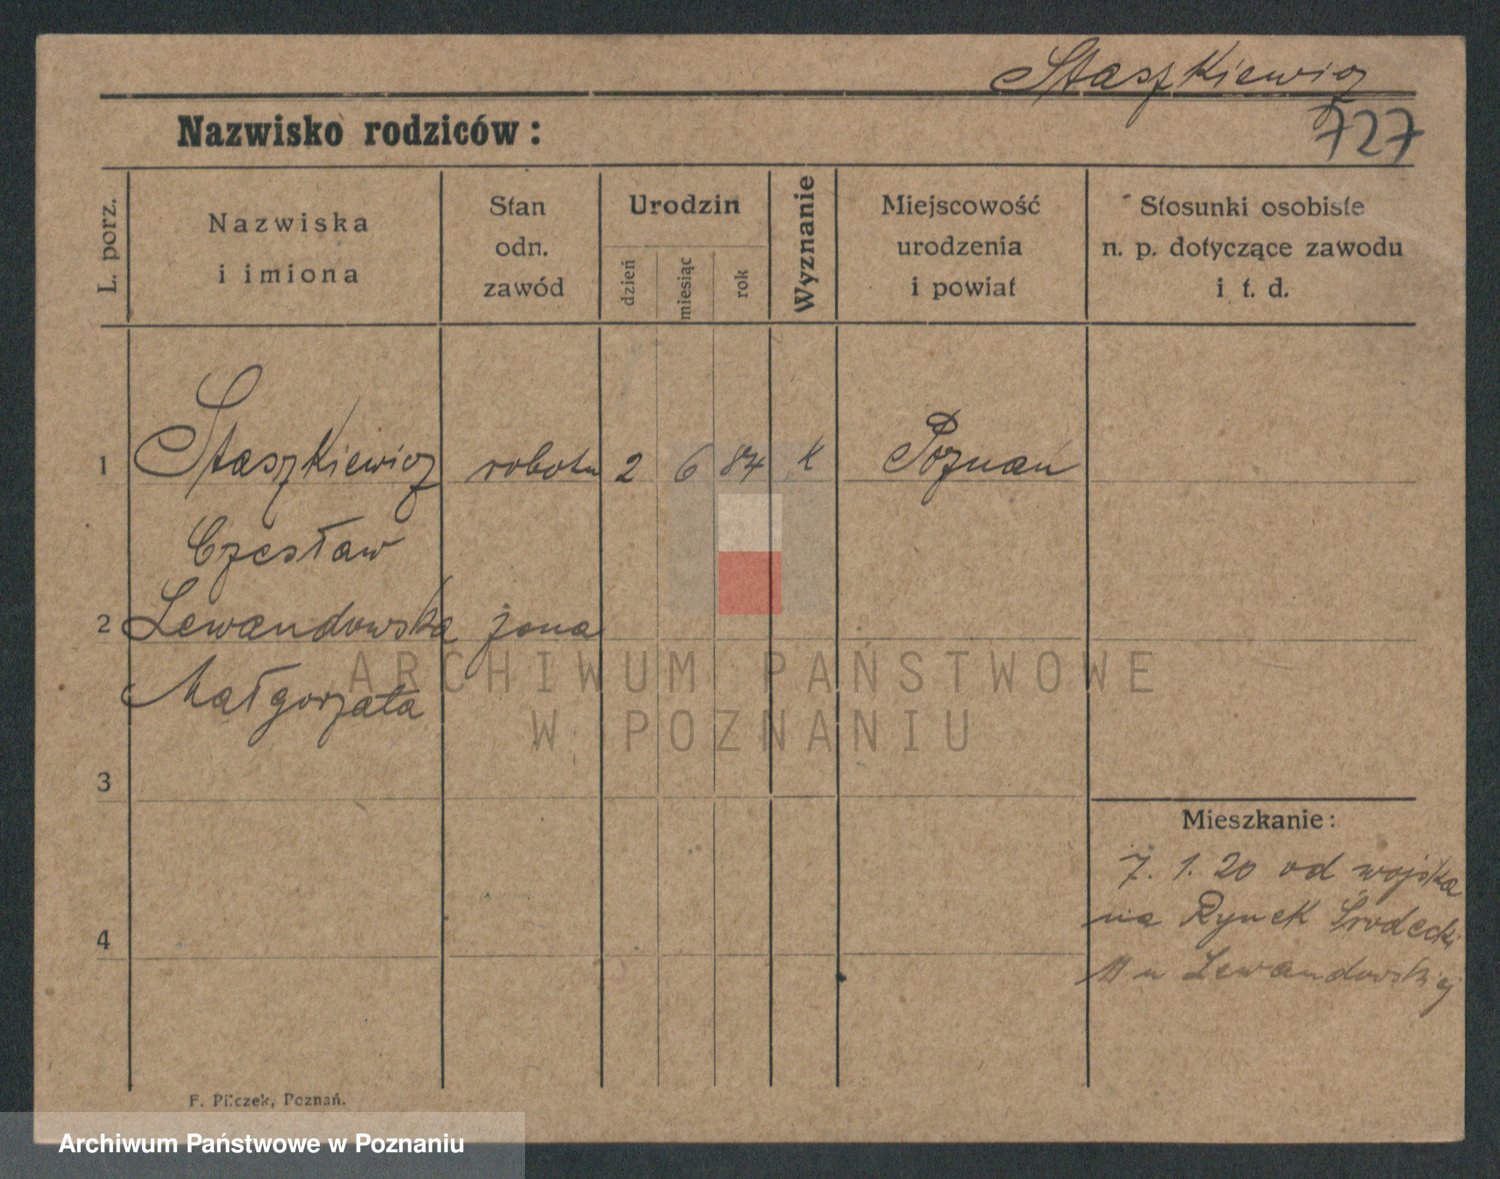 Staszkiewicz
727
Nazwisko rodziców:
L. porz.
Nazwiska
i imiona
Stan
odn.
zawód
Urodzin
dzień
miesiąc
rok
Wyznanie
Miejscowość
urodzenia
i powiat
Stosunki osobiste
n. p. dotyczące zawodu
i t. d.
1 Staszkiewicz robotn 2 6 84 K Poznań
Czesław
2 Lewandowska żona
Małgorzata
ARCHIWUM PAŃSTWOWE
W POZNANIU
3
Mieszkanie:
7. 1. 20 od wojska
na Rynek Śródecki
11 u Lewandowskiej
4
F. Pilczek, Poznań.
Archiwum Państwowe w Poznaniu